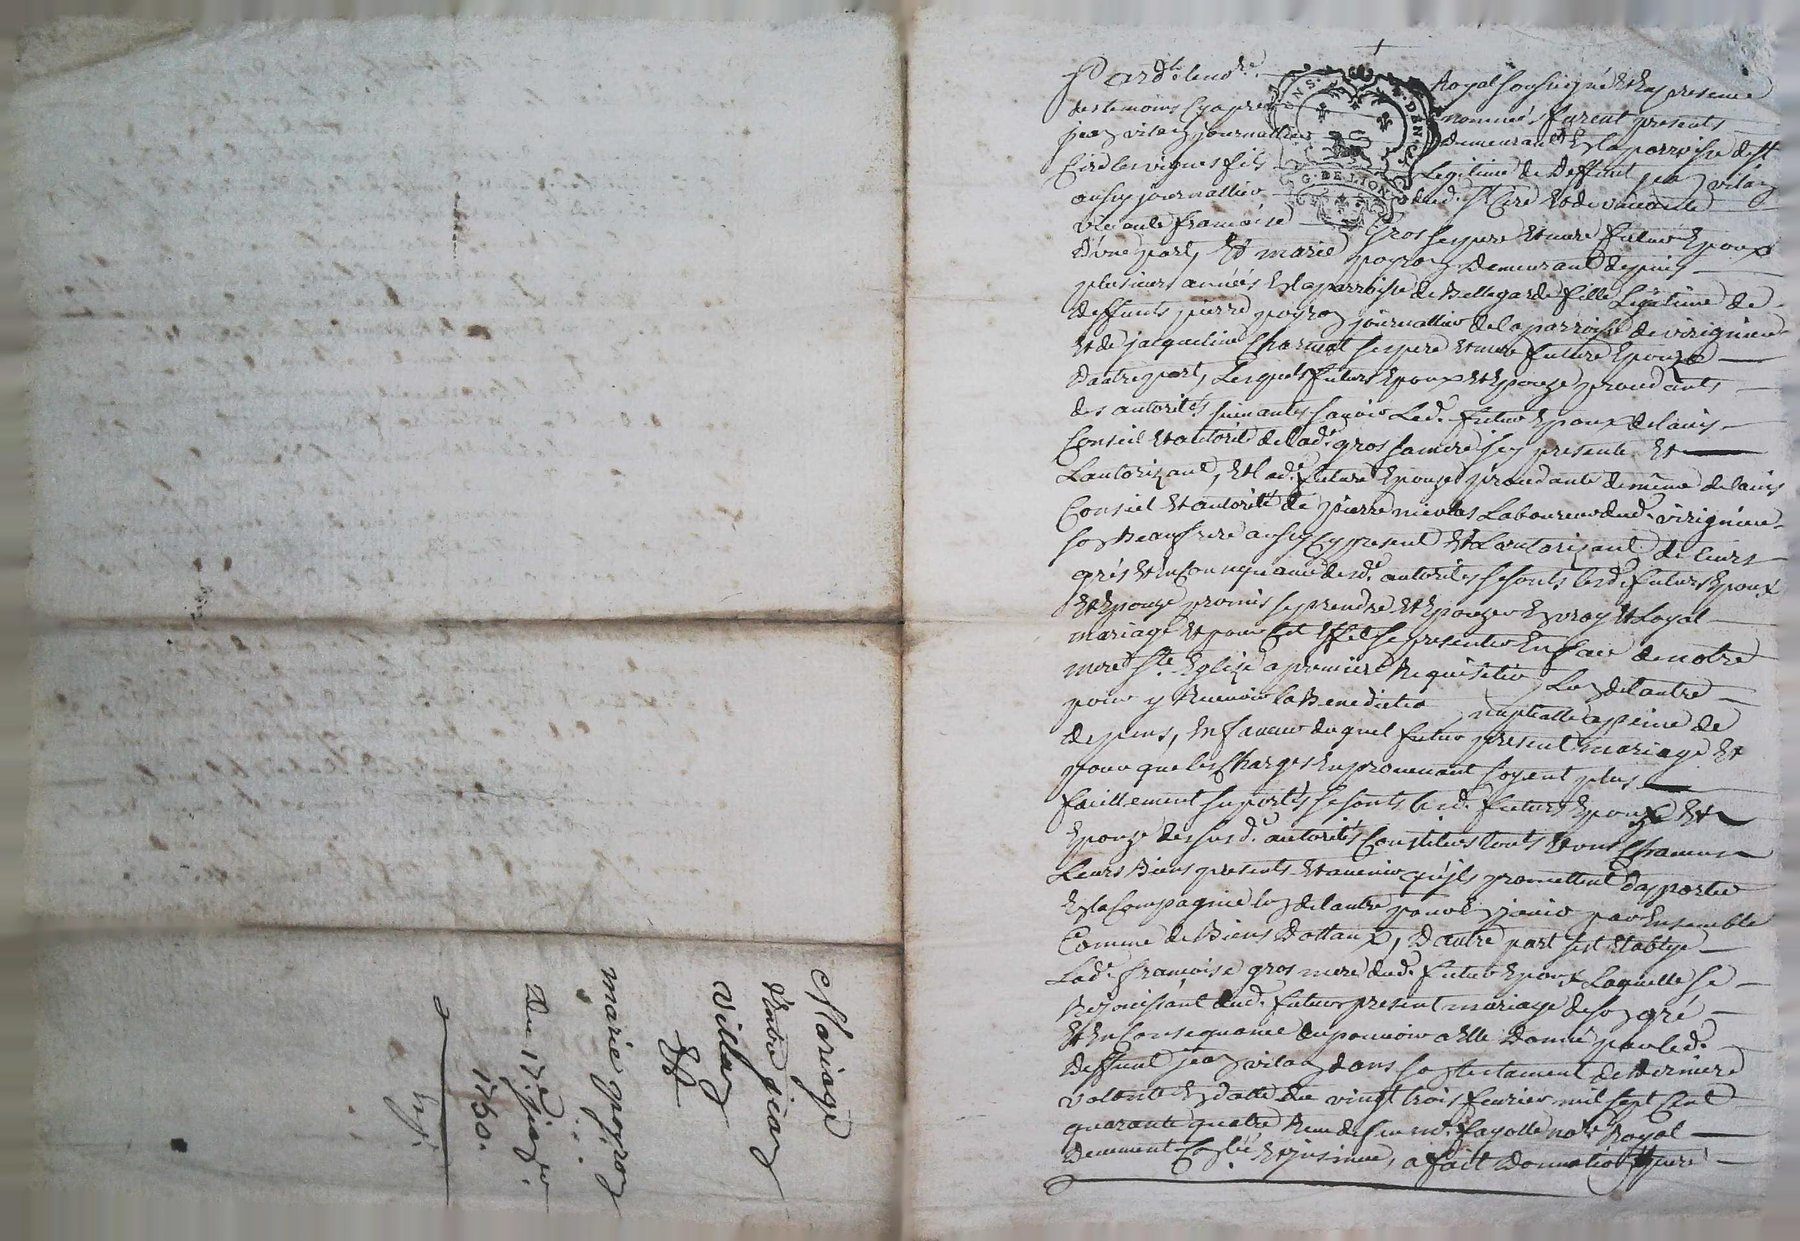 Mariage
d'entre jean
vilan
Et
marie poyron
Du 17e janvier
1750.
Par dt le nore Royal soussigné Et En presence
des temoins Cy apres nommés furent presents
jean vilan journallier demeurant En la parroisse de St
Cire les vignes fils Legitime de deffunt jean vilan
aussy journallier dud. St Cire Et de vivante
françoise Gros ses pere Et mere futur Epoux
d'une part, Et marie poyron demeurant depuis
plusieurs années En la parroisse de Bellegarde fille Legitime de
deffunts pierre poyron journallier de la parroisse de virignieu
Et de jacqueline Charuat ses pere Et mere future Epouze
d'autre part, Lesquels futurs Epoux Et Epouze procedants
des autorités suivantes sçavoir Led. futur Epoux de l'avis
Conseil Et autorité de lad. gros sa mere icy presente Et
L'autorizant, Et lad. future Epouze procedante de même de l'avis
Conseil Et autorité de pierre Laboureur dud. virignieu
son Beaufrere aussy Cy present Et L'autorizant de leurs
grés Et En Consequance desd. autorités se sonts lesd. futurs Epoux
Et Epouze promis se prendre Et Epouzer En vray Et Loyal
mariage Et pour Cet Effet se presenter En face de notre
mere Ste Eglize a premiere Requisition L'un de l'autre
pour y Recevoir la Benediction nuptialle a peine de
depens, En faveur duquel futur present mariage Et
pour que les Charges En provenant soyent plus
facillement suportés se sonts lesd. futurs Epoux Et
Epouze des susd. autorités Constitués touts Et uns Chacuns
Leurs Biens presents Et avenir qu'ils promettent d'apporter
En la Compagnie l'un de l'autre pour En jouir par Ensemble
Comme de Biens Dottaux, D'autre part s'est Etablye
Lad. françoise gros mere dud. futur Epoux Laquelle se
Rejouissant dud. futur present mariage de son gré
Et En Consequance du pouvoir a Elle Donné par led.
deffunt jean vilan dans son testament de derniere
volonté En datte du vingt trois fevrier mil sept Cent
quarante quatre Reçu de feu me fayolle nore Royal
deuement Collé Et insinué, a fait Donnation pure
G. DE LION